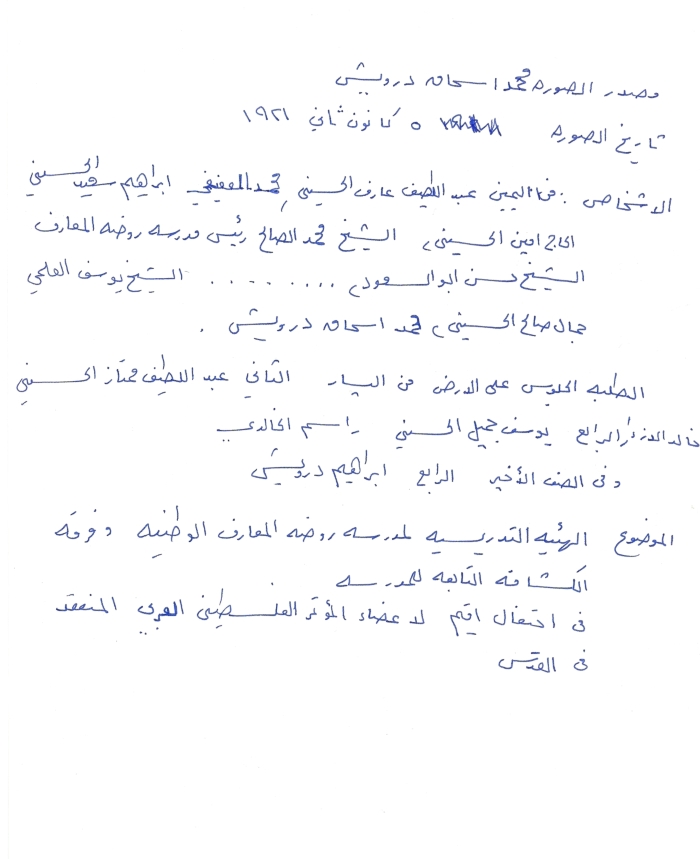 مصدر الصوره محمد اسحاق درويش
تاريخ الصوره ٥ كانون ثاني ١٩٢١
الاشخاص : من اليمين عبد اللطيف عارف الحسيني، محمد العفيفي ابراهيم سعيد الحسيني
الحاج امين الحسيني، الشيخ محمد الصالح رئيس مدرسه روضه المعارف
الشيخ حسن ابو السعود، ........ الشيخ يوسف العلمي
جمال صالح الحسيني، محمد اسحاق درويش .
الطلبه الجلوس على الارض من اليسار الثاني عبد اللطيف ممتاز الحسيني
خالد الرابع يوسف جميل الحسيني راسم الخالدي
وفى الصف الأخير الرابع ابراهيم درويش
الموضوع الهئيه التدريسيه لمدرسه روضه المعارف الوطنيه وفرقه
الكشافه التابعه للمدرسه
فى احتفال اقيم لاعضاء المؤتمر الفلسطيني العربي المنعقد
فى القدس